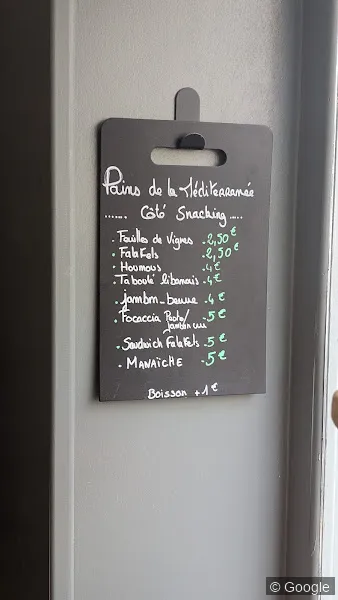 Pains de la Méditerranée
....... Côté Snacking .....
. Feuilles de vignes - 2,50 €
. Falafels - 2,50 €
. Houmous - 4 €
. Taboulé libanais - 4 €
. jambon-beurre - 4 €
. Focaccia Pesto/ - 5 €
jambon cru
. Sandwich Falafels - 5 €
. MANAÏCHE - 5 €
Boisson + 1 €
© Google